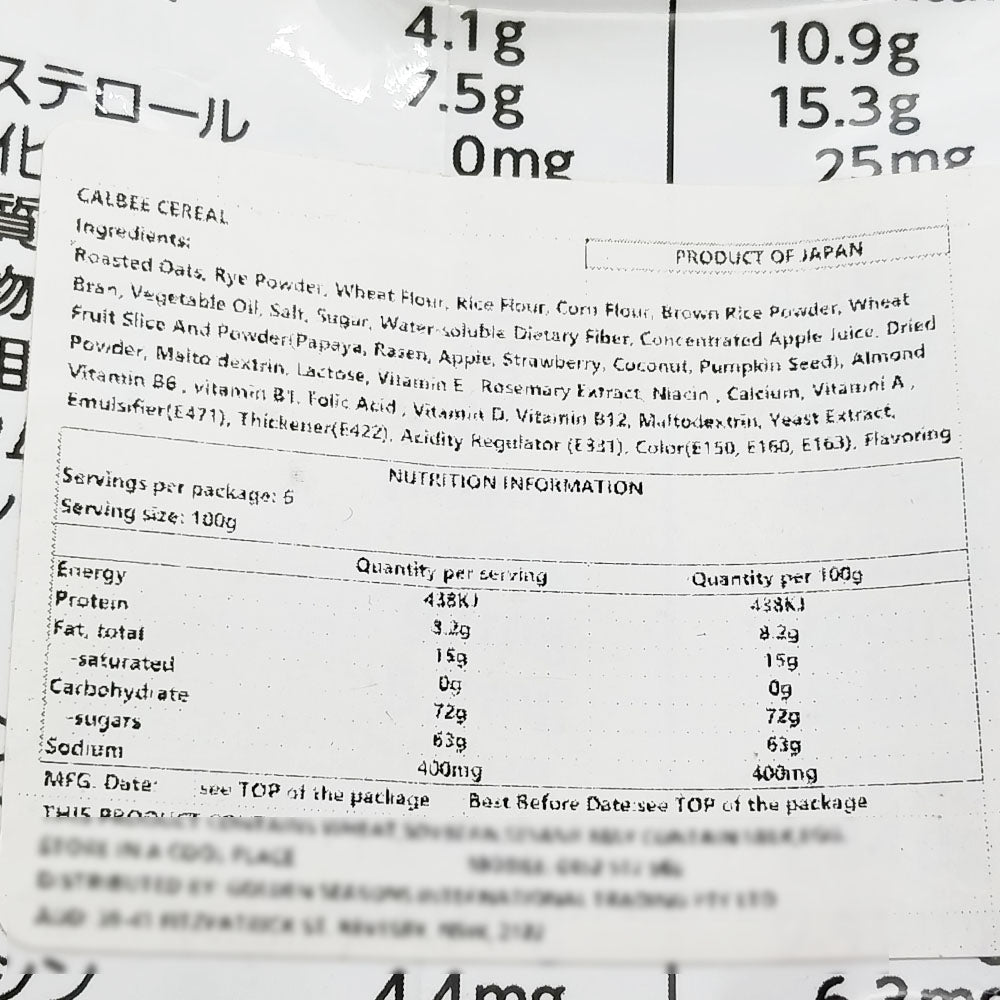 4.1g 10.9g
ステロール 7.5g 15.3g
化 0mg 25mg
質
物
CALBEE CEREAL
Ingredients:
PRODUCT OF JAPAN
Roasted Oats, Rye Powder, Wheat Flour, Rice Flour, Corn Flour, Brown Rice Powder, Wheat
Bran, Vegetable Oil, Salt, Sugar, Water-soluble Dietary Fiber, Concentrated Apple Juice, Dried
Fruit Slice And Powder(Papaya, Rasen, Apple, Strawberry, Coconut, Pumpkin Seed), Almond
Powder, Malto dextrin, Lactose, Vitamin E, Rosemary Extract, Niacin, Calcium, Vitamni A,
Vitamin B6, vitamin B1, Folic Acid, Vitamin D, Vitamin B12, Maltodextrin, Yeast Extract,
Emulsifier(E471), Thickener(E422), Acidity Regulator (E331), Color(E150, E160, E163), Flavoring
NUTRITION INFORMATION
Servings per package: 6
Serving size: 100g
Quantity per serving Quantity per 100g
Energy 438KJ 438KJ
Protein 8.2g
Fat, total 15g 15g
-saturated 0g 0g
Carbohydrate 72g 72g
-sugars 63g 63g
Sodium 400mg 400mg
MFG. Date: see TOP of the package Best Before Date:see TOP of the package
THIS PRODUCT
4.4mg 6.3mg